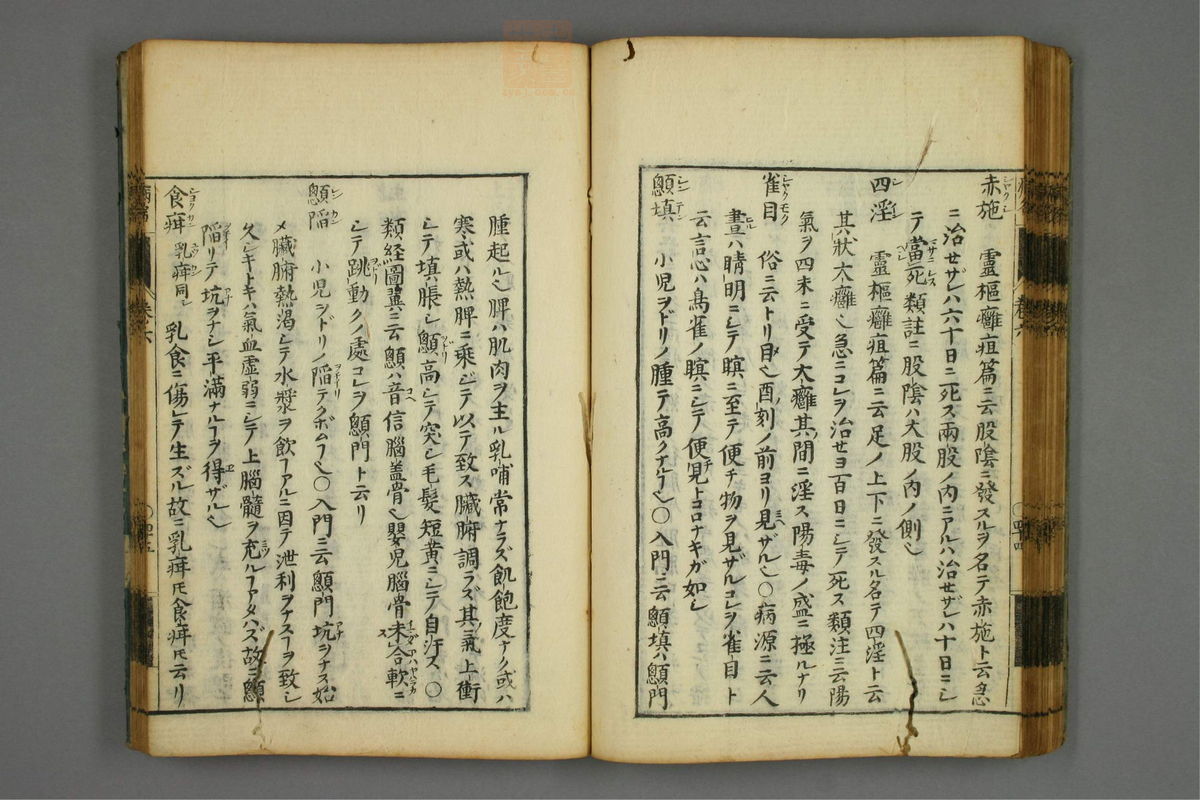 赤施 靈樞癰疽篇ニ云股陰ニ發スルヲ名テ赤施ト云急
ニ治セザレハ六十日ニ死ス兩股ノ内ニアルハ治せザレハ十日ニシ
テ當死類註ニ股陰ハ大股ノ内ノ側也
四淫 靈樞癰疽篇ニ云足ノ上下ニ發スル名テ四淫ト云
其狀大癰也急ニコレヲ治セヨ百日ニシテ死ス類注ニ云陽
氣ヲ四末ニ受テ大癰其間ニ淫ス陽毒ノ盛ニ極ルナリ
雀目 俗ニ云トリ目也酉ノ刻ノ前ヨリ見ザル也○病源ニ云人
晝ハ睛明ニシテ瞑ニ至テ便チ物ヲ見ザルコレヲ雀目ト
云言心ハ鳥雀ノ瞑ニシテ便見トコロナキガ如シ
顖填 小児ヲドリノ腫テ高クナル也○入門ニ云顖填ハ顖門
腫起ル也脾ハ肌肉ヲ主ル乳哺常ナラズ飢飽度ナク或ハ
寒或ハ熱脾ニ乘ジテ以テ致ス臓腑調ラズ其氣上衝
シテ填脹シ顖高シテ突シ毛髮短黄ニシテ自汗ス○
類経圖翼ニ云顖ハ音信腦盖骨也嬰児腦骨未合軟ニ
シテ跳動クノ處コレヲ顖門ト云リ
顖陷 小児ヲドリノ陷テクボムフ也○入門ニ云顖門坑ヲナス始
メ臓腑熱渇シテ水漿ヲ飲フアルニ因テ泄利ヲナスヿヲ致シ
久シキトキハ氣血虚弱ニシテ上腦髓ヲ充ルフアタハズ故ニ顖
陷リテ坑ヲナシ平滿ナルヿヲ得ザル也
食疳 乳疳同シ 乳食ニ傷レテ生ズル故ニ乳疳トモ食疳トモ云リ
巻ノ六